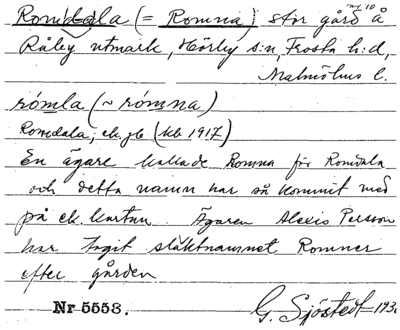 nr 10
Romdala (= Romna) stor gård å
Råby utmark, Hörby s:n, Frosta h:d,
Malmöhus l.
rómla (~ rómna)
Romdala, ek. jb (kb 1917)
En ägare kallade Romna för Romdala
och detta namn har så kommit med
på ek. kartan. Ägaren Alexis Persson
har tagit släktnamnet Romner
efter gården
Nr 5553. G. Sjöstedt